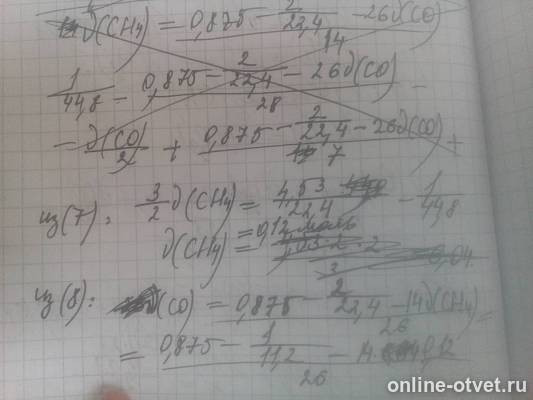 ∂(CH4) = 0,875 - 2/22,4 - 26∂(CO)
14
1/44,8 - 0,875 - 2/22,4 - 26∂(CO) -
28
- ∂(CO)/2 + 0,875 - 2/22,4 - 26∂(CO) +
7
из(7): 3/2 ∂(CH4) = 4,53/22,4 - 1/44,8
∂(CH4) = 0,12 моль
из(8): ∂(CO) = 0,875 - 2/22,4 - 14∂(CH4) =
26
= 0,875 - 1/11,2 - 14 · 0,12
26
online-otvet.ru